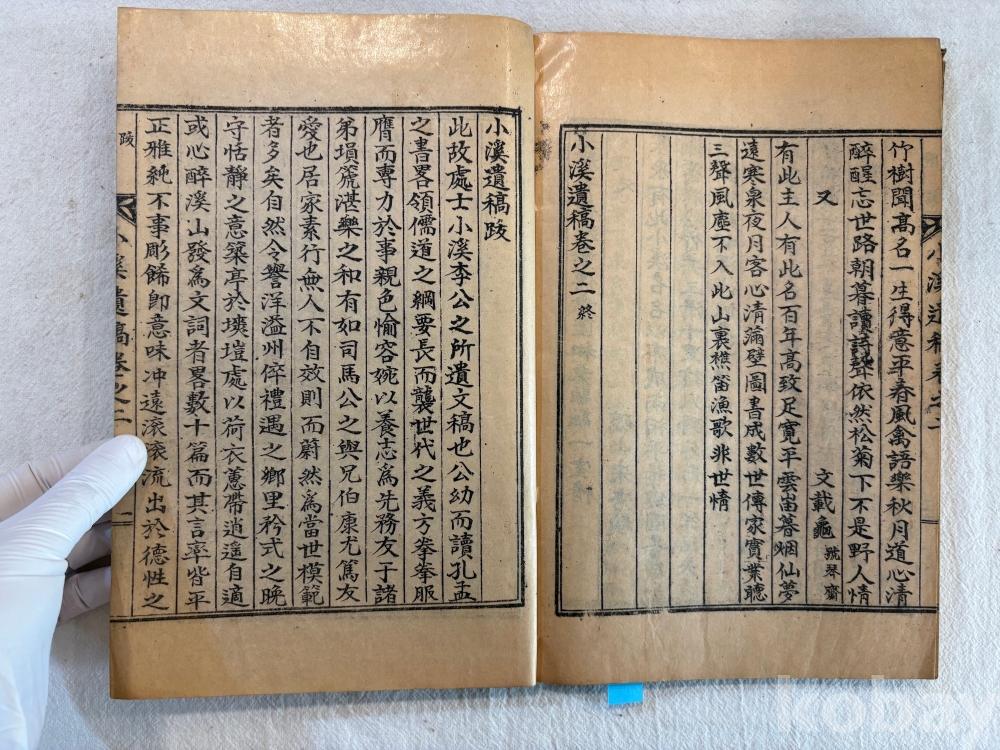 竹樹聞高名一生得意平春風禽語樂秋月道心清
醉醒忘世路朝暮讀詩聲依然松菊下不是野人情
又
文載龜 號琴齋
有此主人有此名百年高致足寬平雲畨暮烟仙夢
遠寒泉夜月客心清滿壁圖書成數世傳家實業聽
三聲風塵不入此山裏樵笛漁歌非世情
小溪遺稿卷之二 終
小溪遺稿卷之二
小溪遺稿跋
此故處士小溪李公之所遺文稿也公幼而讀孔孟
之書畧領儒道之綱要長而襲世代之義方拳拳服
膺而專力於事親色愉容婉以養志爲先務友于諸
弟塤篪湛樂之和有如司馬公之與兄伯康尤篤友
愛也居家素行無人不自效則而蔚然爲當世模範
者多矣自然令譽洋溢州倅禮遇之鄉里矜式之晚
守恬靜之意築亭於塽塏處以荷衣蕙帶逍遙自適
或心醉溪山發爲文詞者畧數十篇而其言率皆平
正雅純不事彫餙卽意味冲遠滾滾流出於德性之
跋
小溪遺稿卷之二
一
kobay